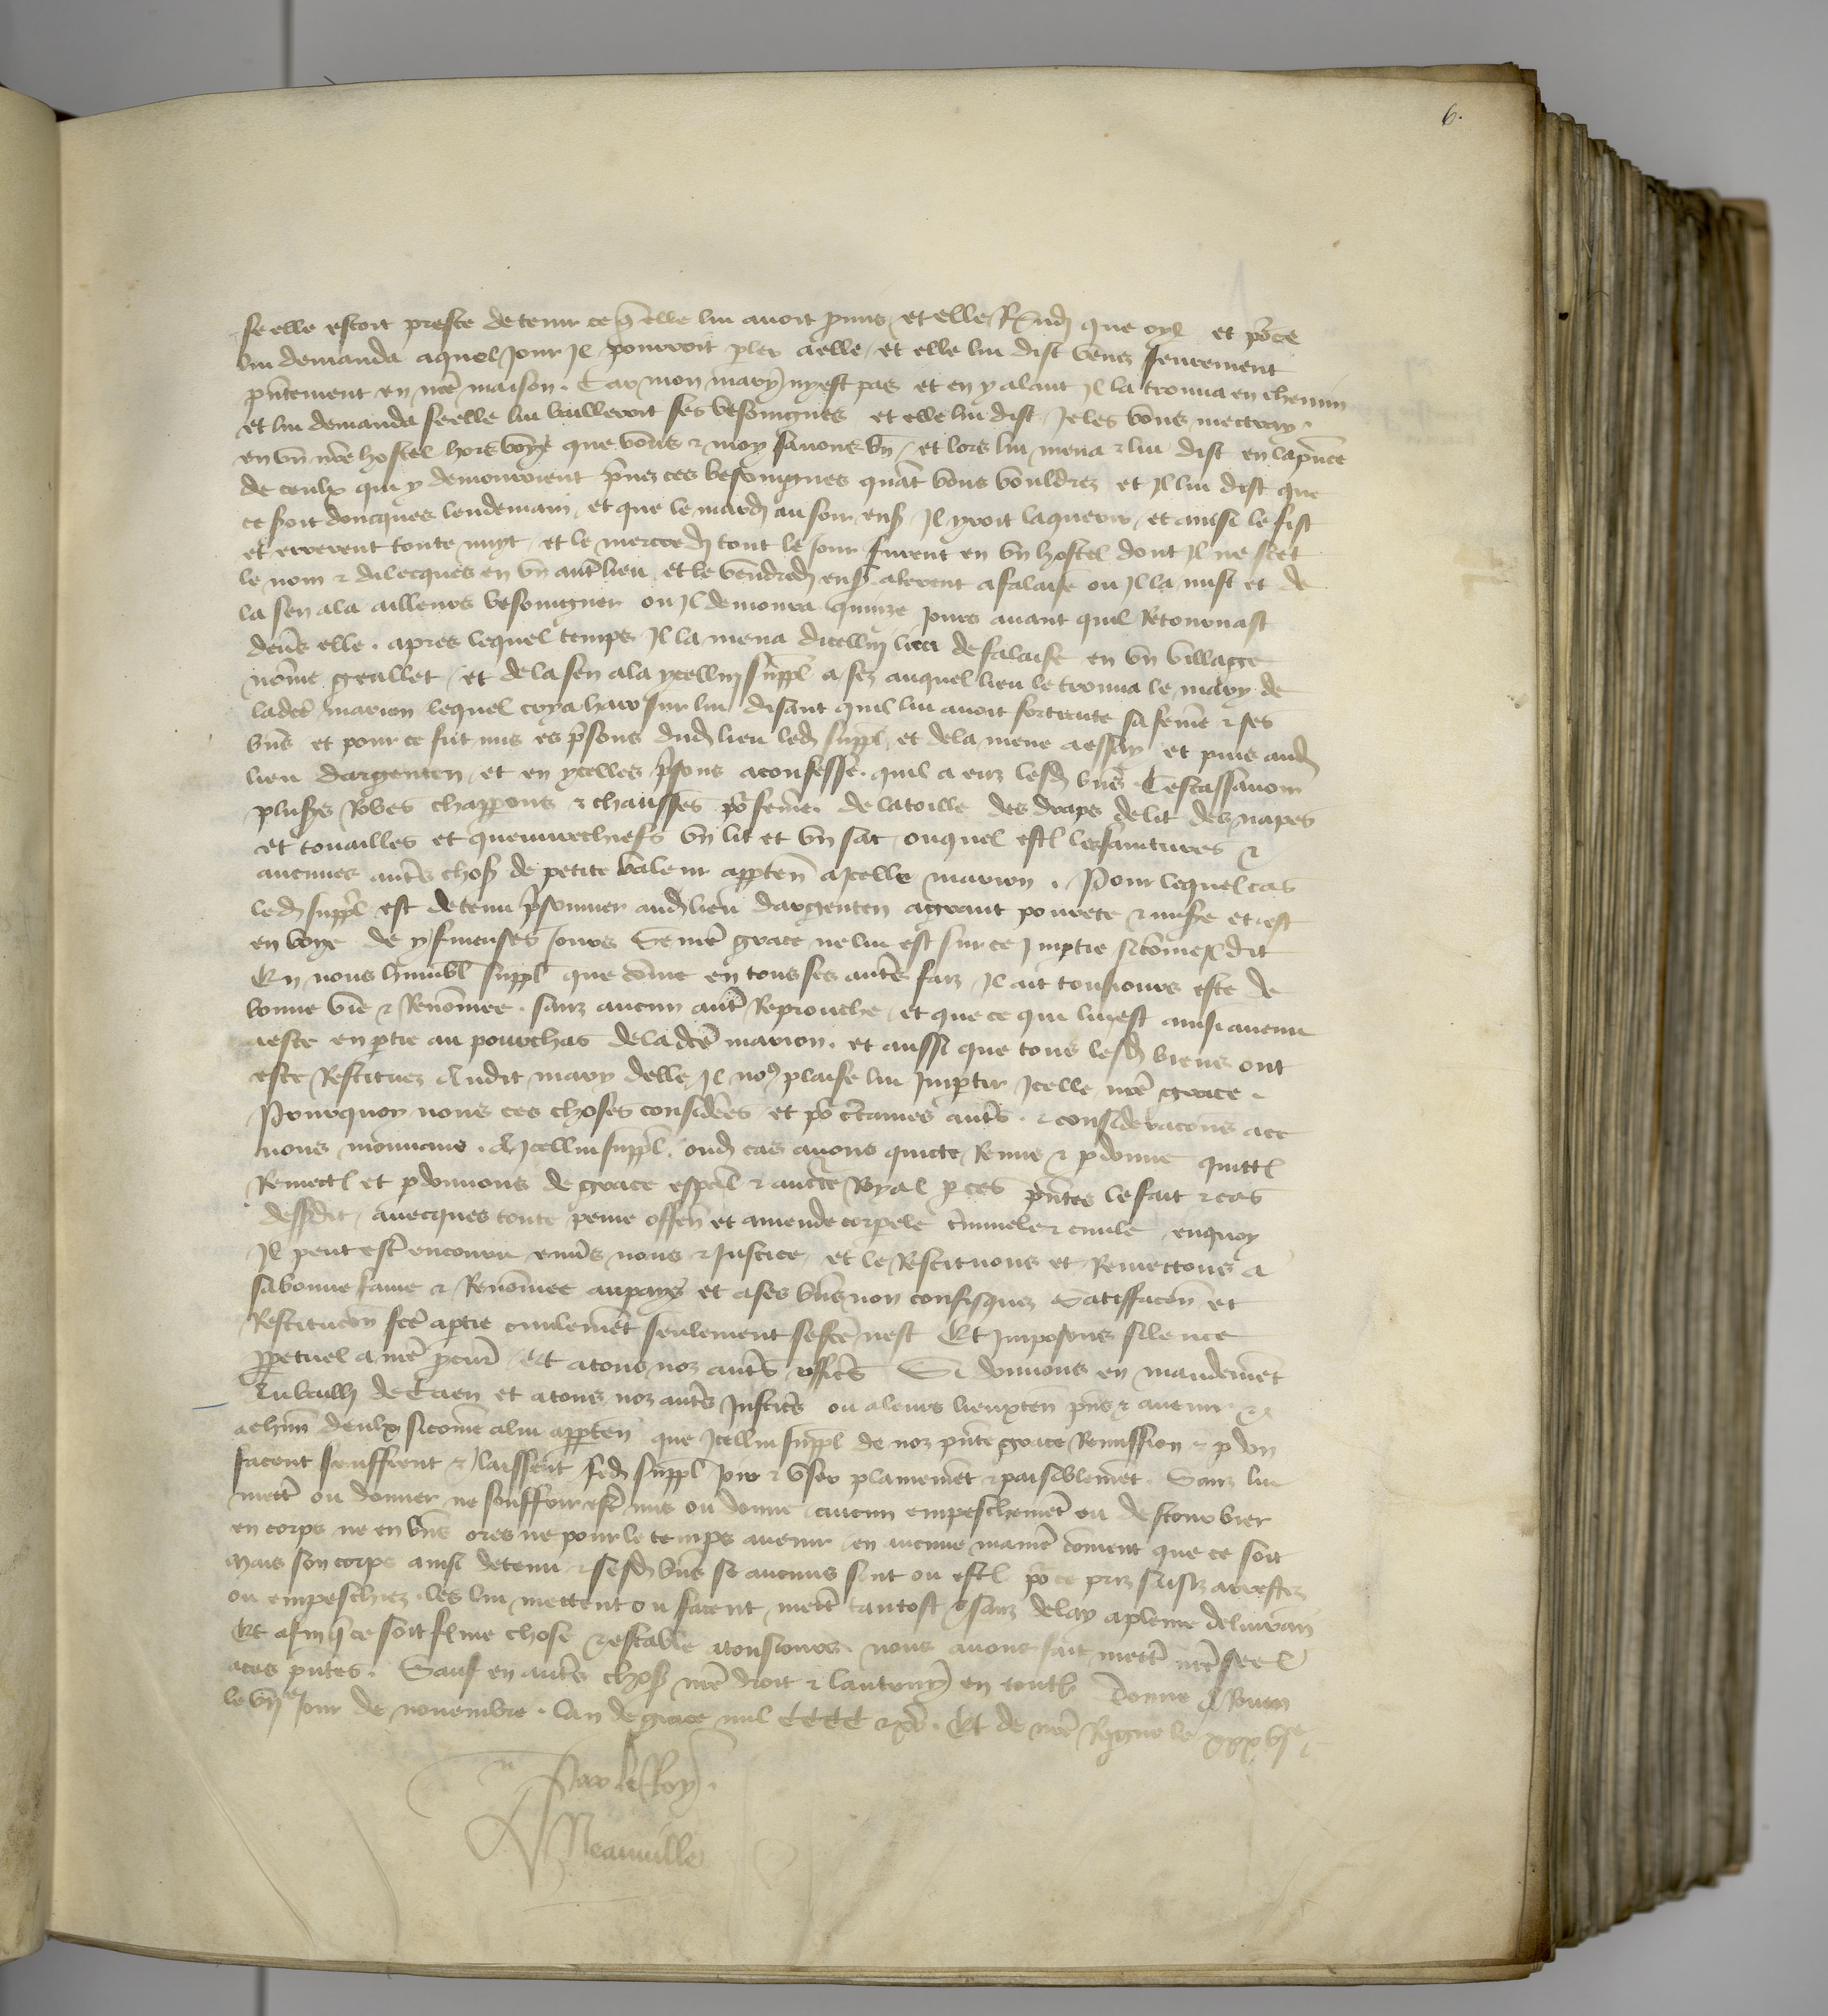 6.
se elle estoit preste de tenir ce q̃ elle lui avoit promis et elle Respondi que oyl et pour ce
lui demanda a quel Jour Il pourroit pler a elle et elle lui dist venez seurement
pñtement en nrẽ maison. Car mon mary ny est pas et en y alant Il la trouva en chemin
et lui demanda se elle lui bailleroit ses besoingnes et elle lui dist Je les vous mectray
en vn nrẽ hostel hors voye que vous & moy savons bñ et lors lui mena & lui dist en la pñce
de ceulx qui y demouroient prenez ces besoingnes quãt vous vouldrez et Il lui dist que
ce seroit doncques lendemain et que le mardi au soir ens Il yroit la querir et ainsi le fist
et errerent toute nuyt et le mercredi tout le Jour furent en vn hostel dont Il ne scet
le nom & dilecques en vn autr̃ lieu et le vendredi ens alerent a falaise ou Il la mist et de
la sen ala ailleurs besoingner ou Il demoura quinze Jours avant quil Retournast
devs̃ elle. apres lequel temps Il la mena dicellui lieu de falaise en vn village
nom̃e greallet et de la sen ala ycellui suppl̃ a sez auquel lieu le trouva le mary de
ladcẽ marion lequel crya haro sur lui disant quil lui avoit fortraite sa fem̃e & ses
bñs et pour ce fut mis es prisons dud lieu led suppl̃ et de la mene a essay et puis aud
lieu dargenten et en ycelles prisons a confesse quil a euz lesd bñs Cestassavoir
plusrs Robes chapperons & chausses po᷑ fem̃e de la toille des draps de lit des napes
et touailles et queuvrechiefs vn lit et vn sac ouquel estoient les saintures &
aucunes autrs̃ chos de petite valeur apptẽn a Icelle marion. Pour lequel cas
led suppl̃ est detenu prisonnier aud lieu dargenten a grant povrete & misere et est
en voye de y finer ses Jours Se nrẽ grace ne lui est sur ce Imptie si com̃e Il dit
En nous humbl̃ suppl̃ que com̃e en tous ses autrs̃ faiz Il ait tousiours este de
bonne vie & Renom̃ee. sanz aucun autr̃ Reprouche et que ce qui lui est ainsi avenu
a este en ptie au pourchas de ladcẽ marion. et aussi que tous lesd biens ont
este Restituez Audit mary delle Il noꝯ plaise lui Impartir Icelle nrẽ grace.
Pourquoy nous ces choses considerees et po᷑ certaines autrs̃. & consideracions a ce
nous mouvans. A Icellui suppl̃. oud cas avons quicte Remis & pdonne quittons
Remectons et pdonnons de grace espal̃ & auctẽ Royal p ces pñtes le fait & cas
dessusdit avecques toute peine offen̄ et amende corpele crimelle & civile enquoy
Il peut estr̃ encouru envs̃ nous & Justice et le Restituons et Remectons a
sa bonne fame & Renom̃ee au pays et a ses bñs non confisquez Satisfacõn et
Restitucõn fcẽ a ptie civilemẽt seulement se fcẽ nest Et Imposons silence
ppetuel a nrẽ pcur̃ et a tous noz autrs̃ officrs̃ Si donnons en mandemẽt
Au bailli de Caen et a tous noz autrs̃ Justicrs̃ ou a leurs lieuxten̄ pñs & avenir &
a chũn deulx si com̃e a lui apptẽn que Icellui suppl̃ de noz pñte grace Remission & pdon
facent seuffrent & laissent led suppl̃ Joir & vser plainemẽt & paisiblemẽt. Sanz lui
mettr̃ ou donner ne souffrir estr̃ mis ou donne aucun empeschemẽt ou destourbier
en corps ne en bñs ores ne pour le temps avenir en aucune manie᷑ com̃ent que ce soit
Mais son corps ainsi detenu & sesd bñs se aucuns sont ou estoient po᷑ ce priz saisiz arrestez
ou empeschiez les lui mettent ou facent mettr̃ tantost & sanz delay a pleine delivran̄
Et afin q̃ ce soit ferme chose & estable a tousiours. nous avons fait mettr̃ nrẽ seel
a ces pñtes. Sauf en autrs̃ chos nrẽ droit & lautruy en toutes Donne A Rouen
le vije Jour de novembre. lan de grace mil CCCC & xv. Et de nrẽ Regne le xxxvje
Par le Roy.
Neauville